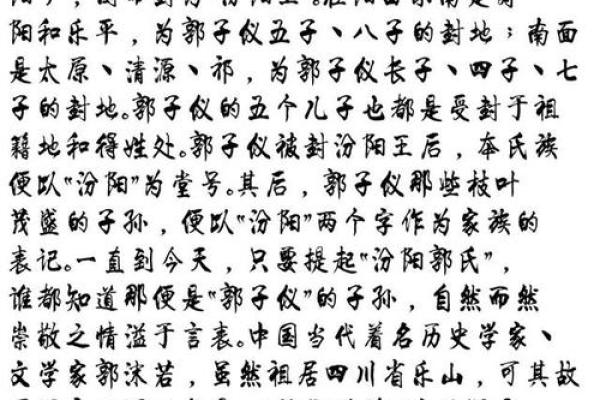 阳和乐平，为郭子仪五子、八子的封地；南面
是太原、清源、祁，为郭子仪长子、四子、七
子的封地。郭子仪的五个儿子也都是受封于祖
籍地和得姓处。郭子仪被封汾阳王后，本氏族
便以“汾阳”为堂号。其后，郭子仪那些枝叶
茂盛的子孙，便以“汾阳”两个字作为家族的
表记。一直到今天，只要提起“汾阳郭氏”，
谁都知道那便是“郭子仪”的子孙，自然而然
崇敬之情溢于言表。中国当代着名历史学家、
文学家郭沫若，虽然祖居四川省乐山，可其故